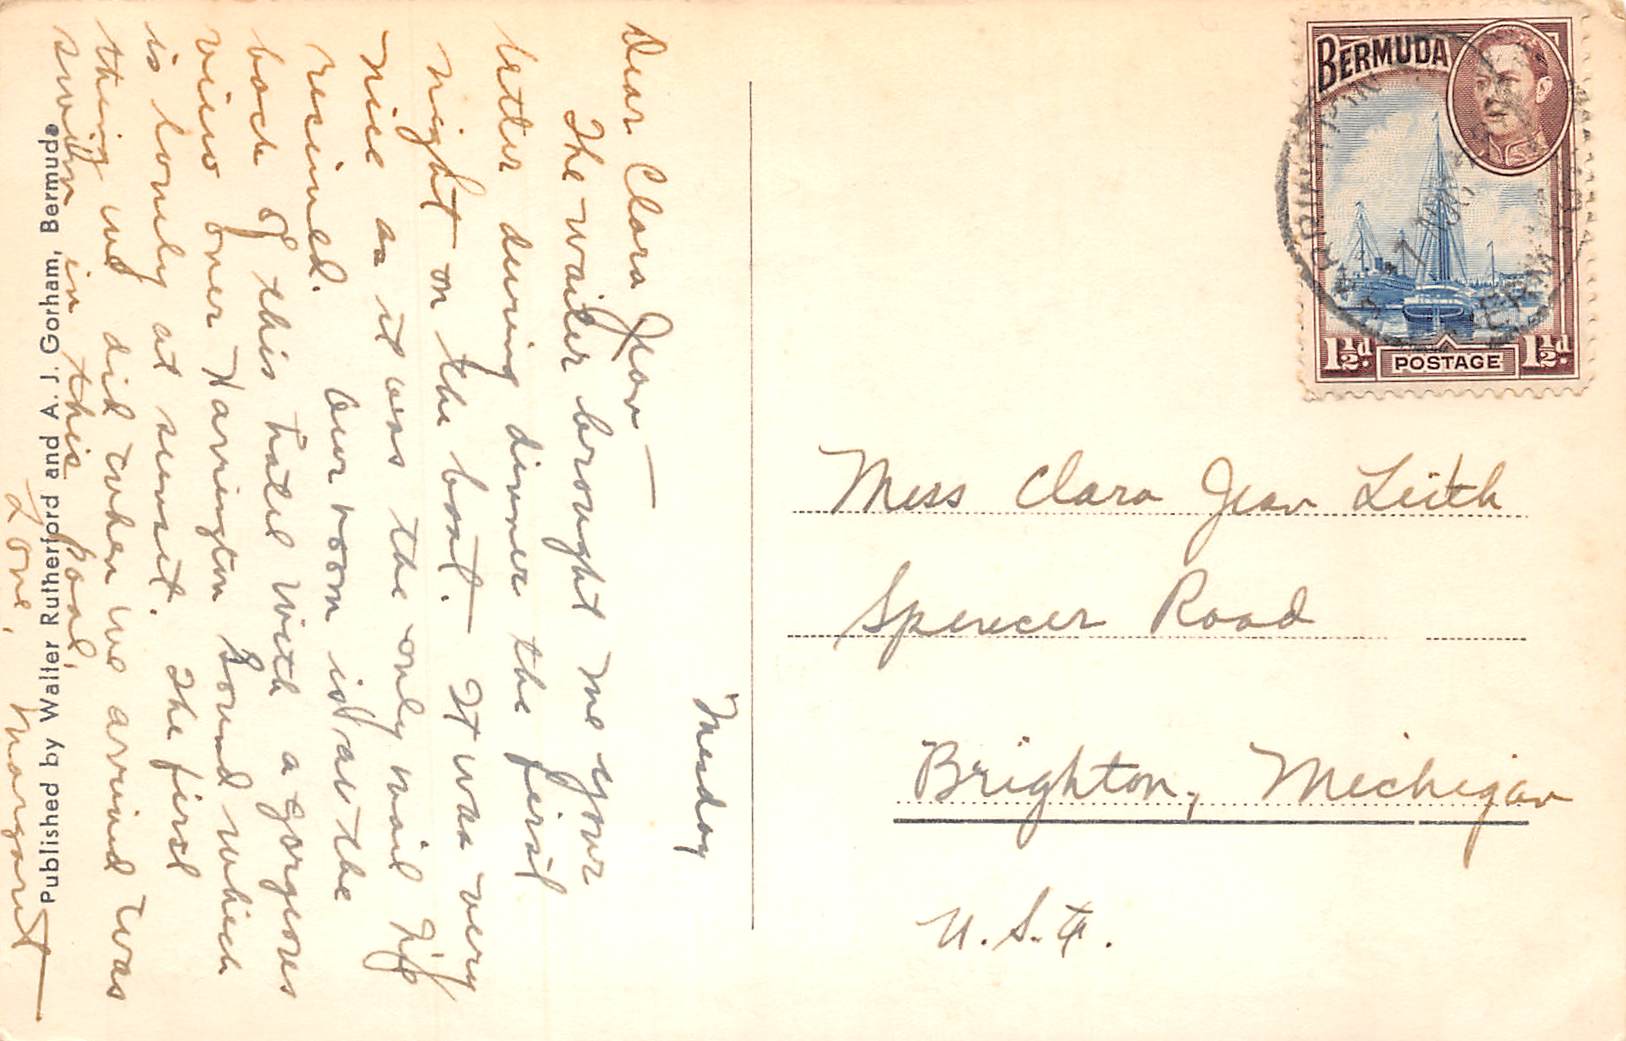 Tuesday
Dear Clara Jean —
The waiter brought me your
letter during dinner the first
night on the boat. It was very
nice as it was the only mail
received. Our room is at the
back of this hotel with a gorgeous
view over Harrington Sound which
is lovely at sunset. The first
thing we did when we arrived was
swim in this pool.
Love, Margaret
Published by Walter Rutherford and A. J. Gorham, Bermuda
BERMUDA
1½d. POSTAGE 1½d
Miss Clara Jean Leith
Spencer Road
Brighton, Michigan
U.S.A.